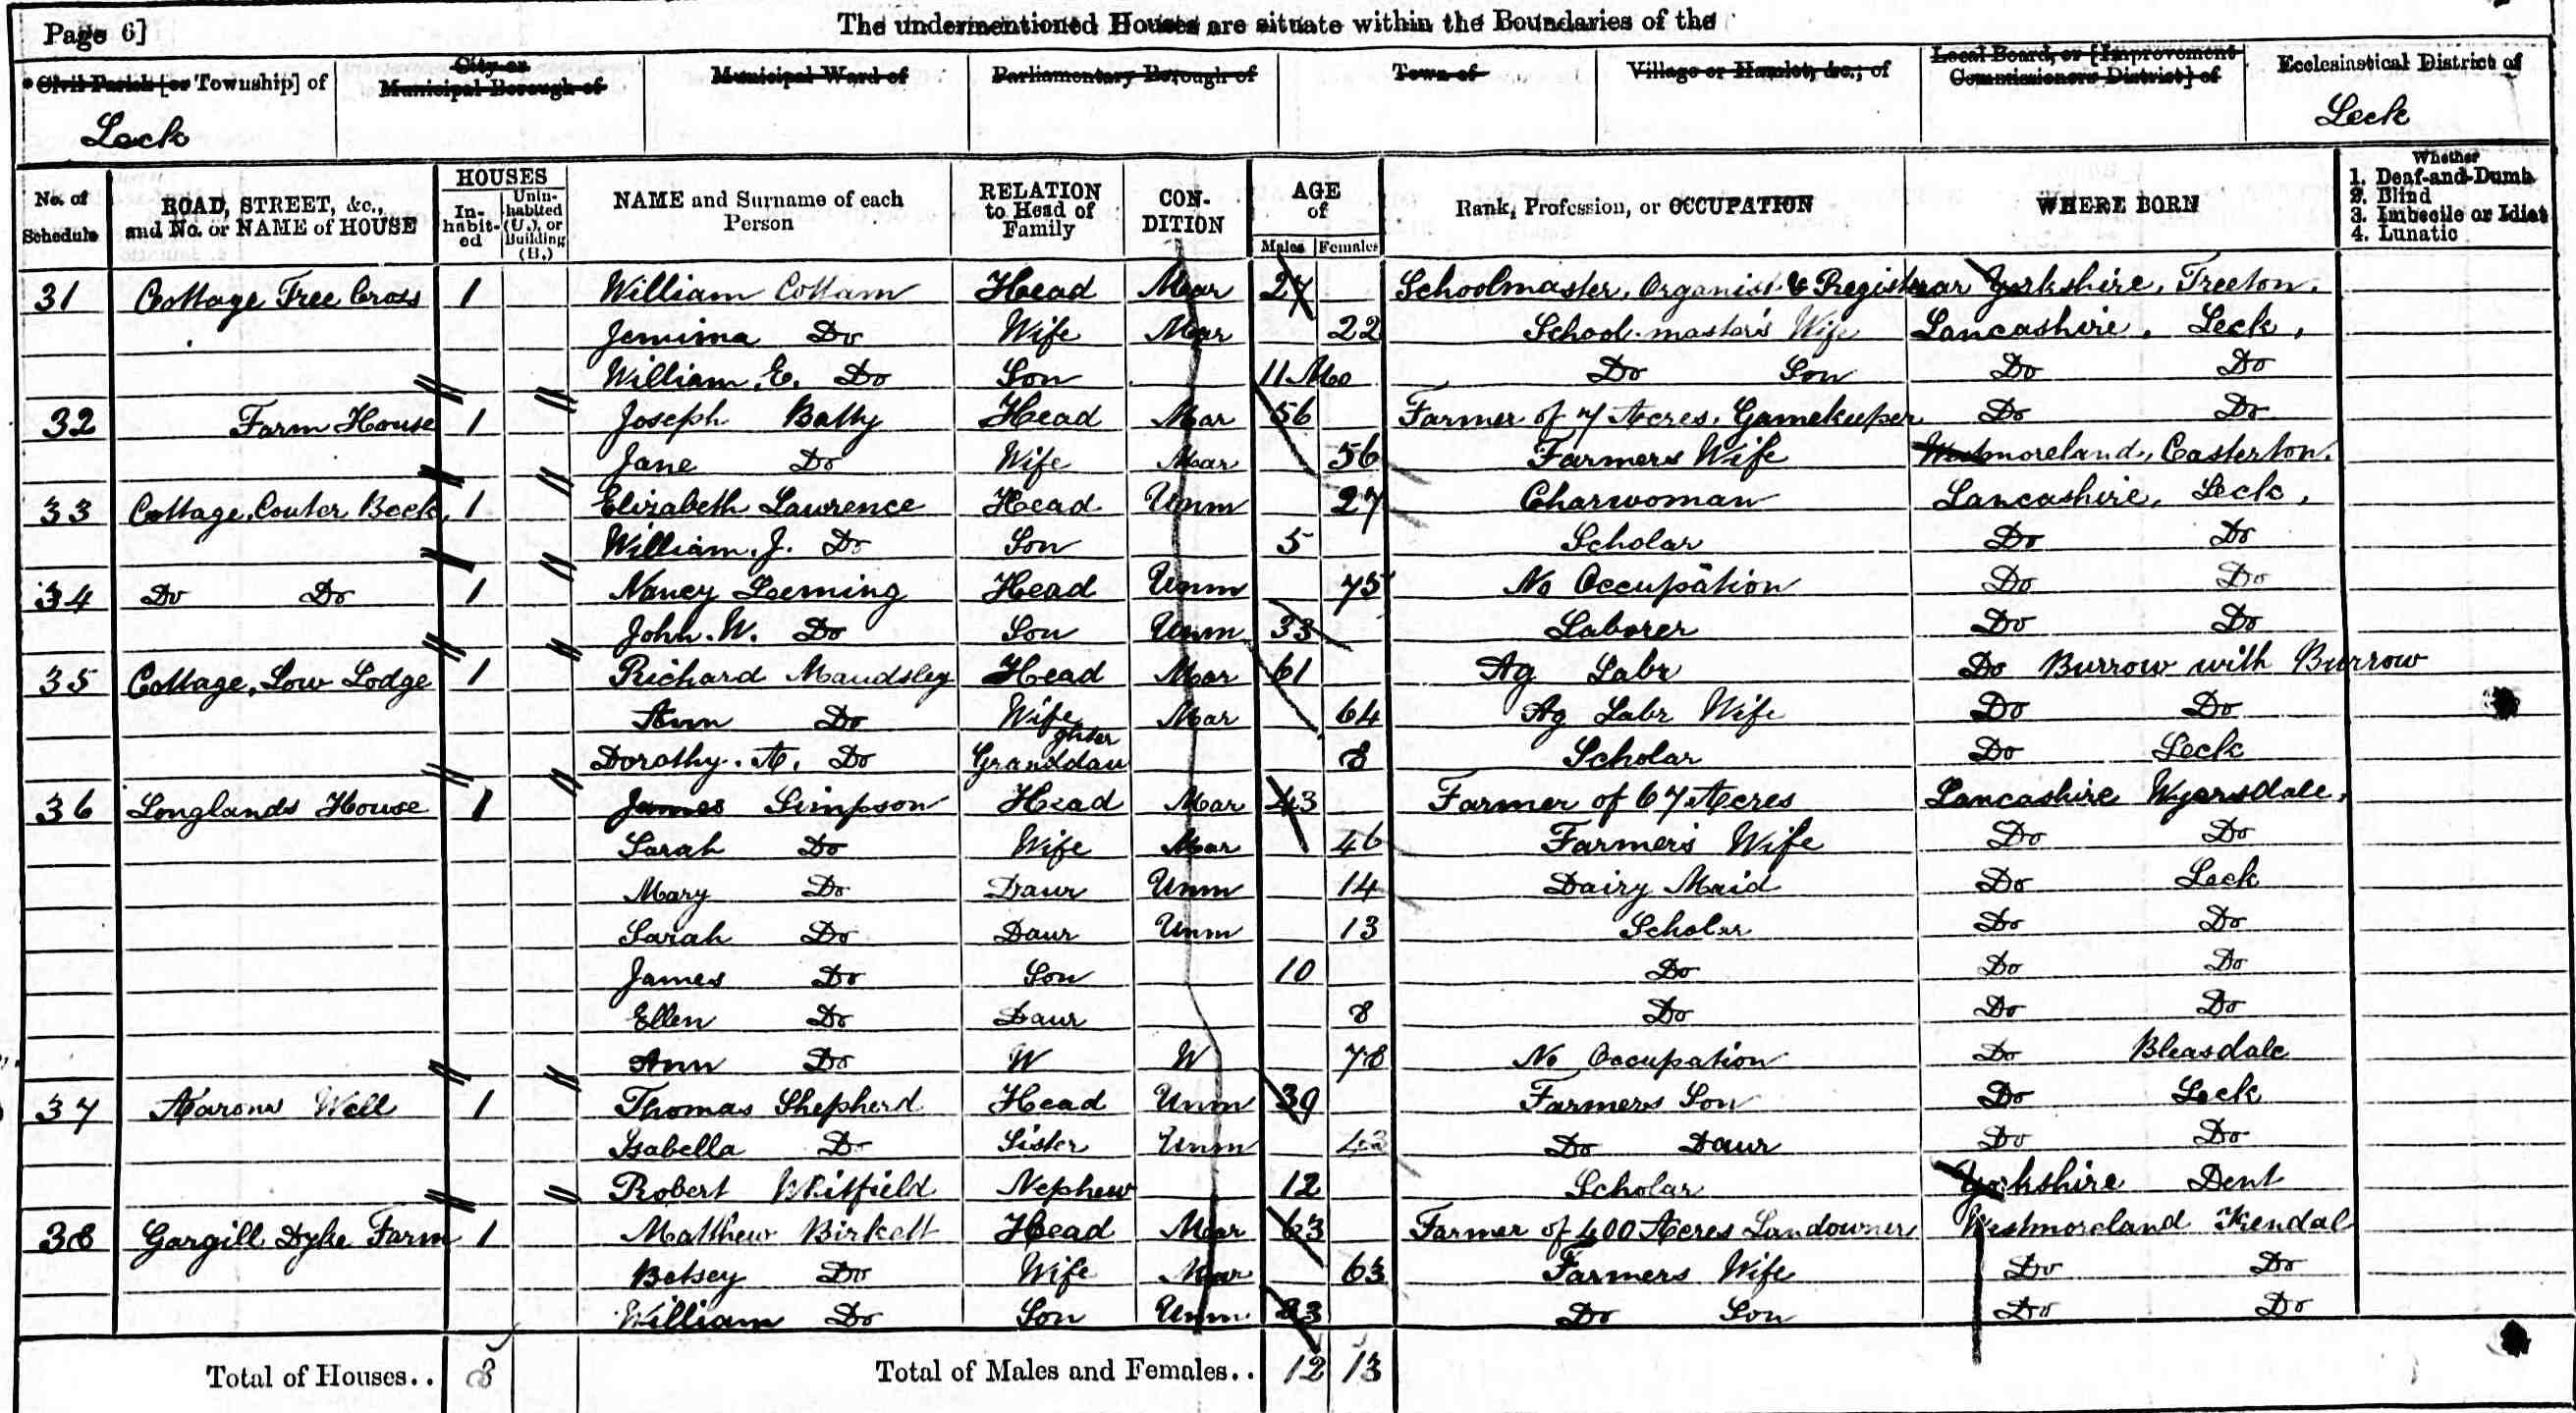 Page 6]
The undermentioned Houses are situate within the Boundaries of the
Civil Parish [or Township] of City or Municipal Borough of Municipal Ward of Parliamentary Borough of Town of Village or Hamlet, &c., of Local Board, or [Improvement Commissioners District] of Ecclesiastical District of
Leck Leck
No. of Schedule ROAD, STREET, &c., and No. or NAME of HOUSE HOUSES Inhabited Uninhabited (U.), or Building (B.) NAME and Surname of each Person RELATION to Head of Family CONDITION AGE of Males Females Rank, Profession, or OCCUPATION WHERE BORN Whether 1. Deaf-and-Dumb 2. Blind 3. Imbecile or Idiot 4. Lunatic
31 Cottage Tree Cross 1 William Cottam Head Mar 27 Schoolmaster, Organist & Registerar Yorkshire, Treeton.
Jemima Do Wife Mar 22 School-master's Wife Lancashire, Leck,
William. E. Do Son 11 Mo Do Son Do Do
32 Farm House 1 Joseph Batty Head Mar 56 Farmer of 7 Acres, Gamekeeper Do Do
Jane Do Wife Mar 56 Farmers Wife Westmoreland, Casterton.
33 Cottage, Couter Beck, 1 Elizabeth Lawrence Head Unm 27 Charwoman Lancashire, Leck,
William. J. Do Son 5 Scholar Do Do
34 Do Do 1 Nancy Leeming Head Unm 75 No Occupation Do Do
John. W. Do Son Unm 33 Laborer Do Do
35 Cottage, Low Lodge 1 Richard Maudsley Head Mar 61 Ag Labr Do Burrow with Burrow
Ann Do Wife Mar 64 Ag Labr Wife Do Do
Dorothy. A. Do Granddaughter 8 Scholar Do Leck
36 Longlands House 1 James Simpson Head Mar 43 Farmer of 67 Acres Lancashire Wyersdale,
Sarah Do Wife Mar 46 Farmer's Wife Do Do
Mary Do Daur Unm 14 Dairy Maid Do Leck
Sarah Do Daur Unm 13 Scholar Do Do
James Do Son 10 Do Do Do
Ellen Do Daur 8 Do Do Do
Ann Do W W 78 No Occupation Do Bleasdale
37 Aarons Well 1 Thomas Shepherd Head Unm 39 Farmers Son Do Leck
Isabella Do Sister Unm 43 Do Daur Do Do
Robert Whitfield Nephew 12 Scholar Yorkshire Dent
38 Gargill Dyke Farm 1 Matthew Birkett Head Mar 63 Farmer of 400 Acres Landowner Westmoreland Kendal
Betsey Do Wife Mar 63 Farmers Wife Do Do
William Do Son Unm 23 Do Son Do Do
Total of Houses.. 8 Total of Males and Females.. 12 13